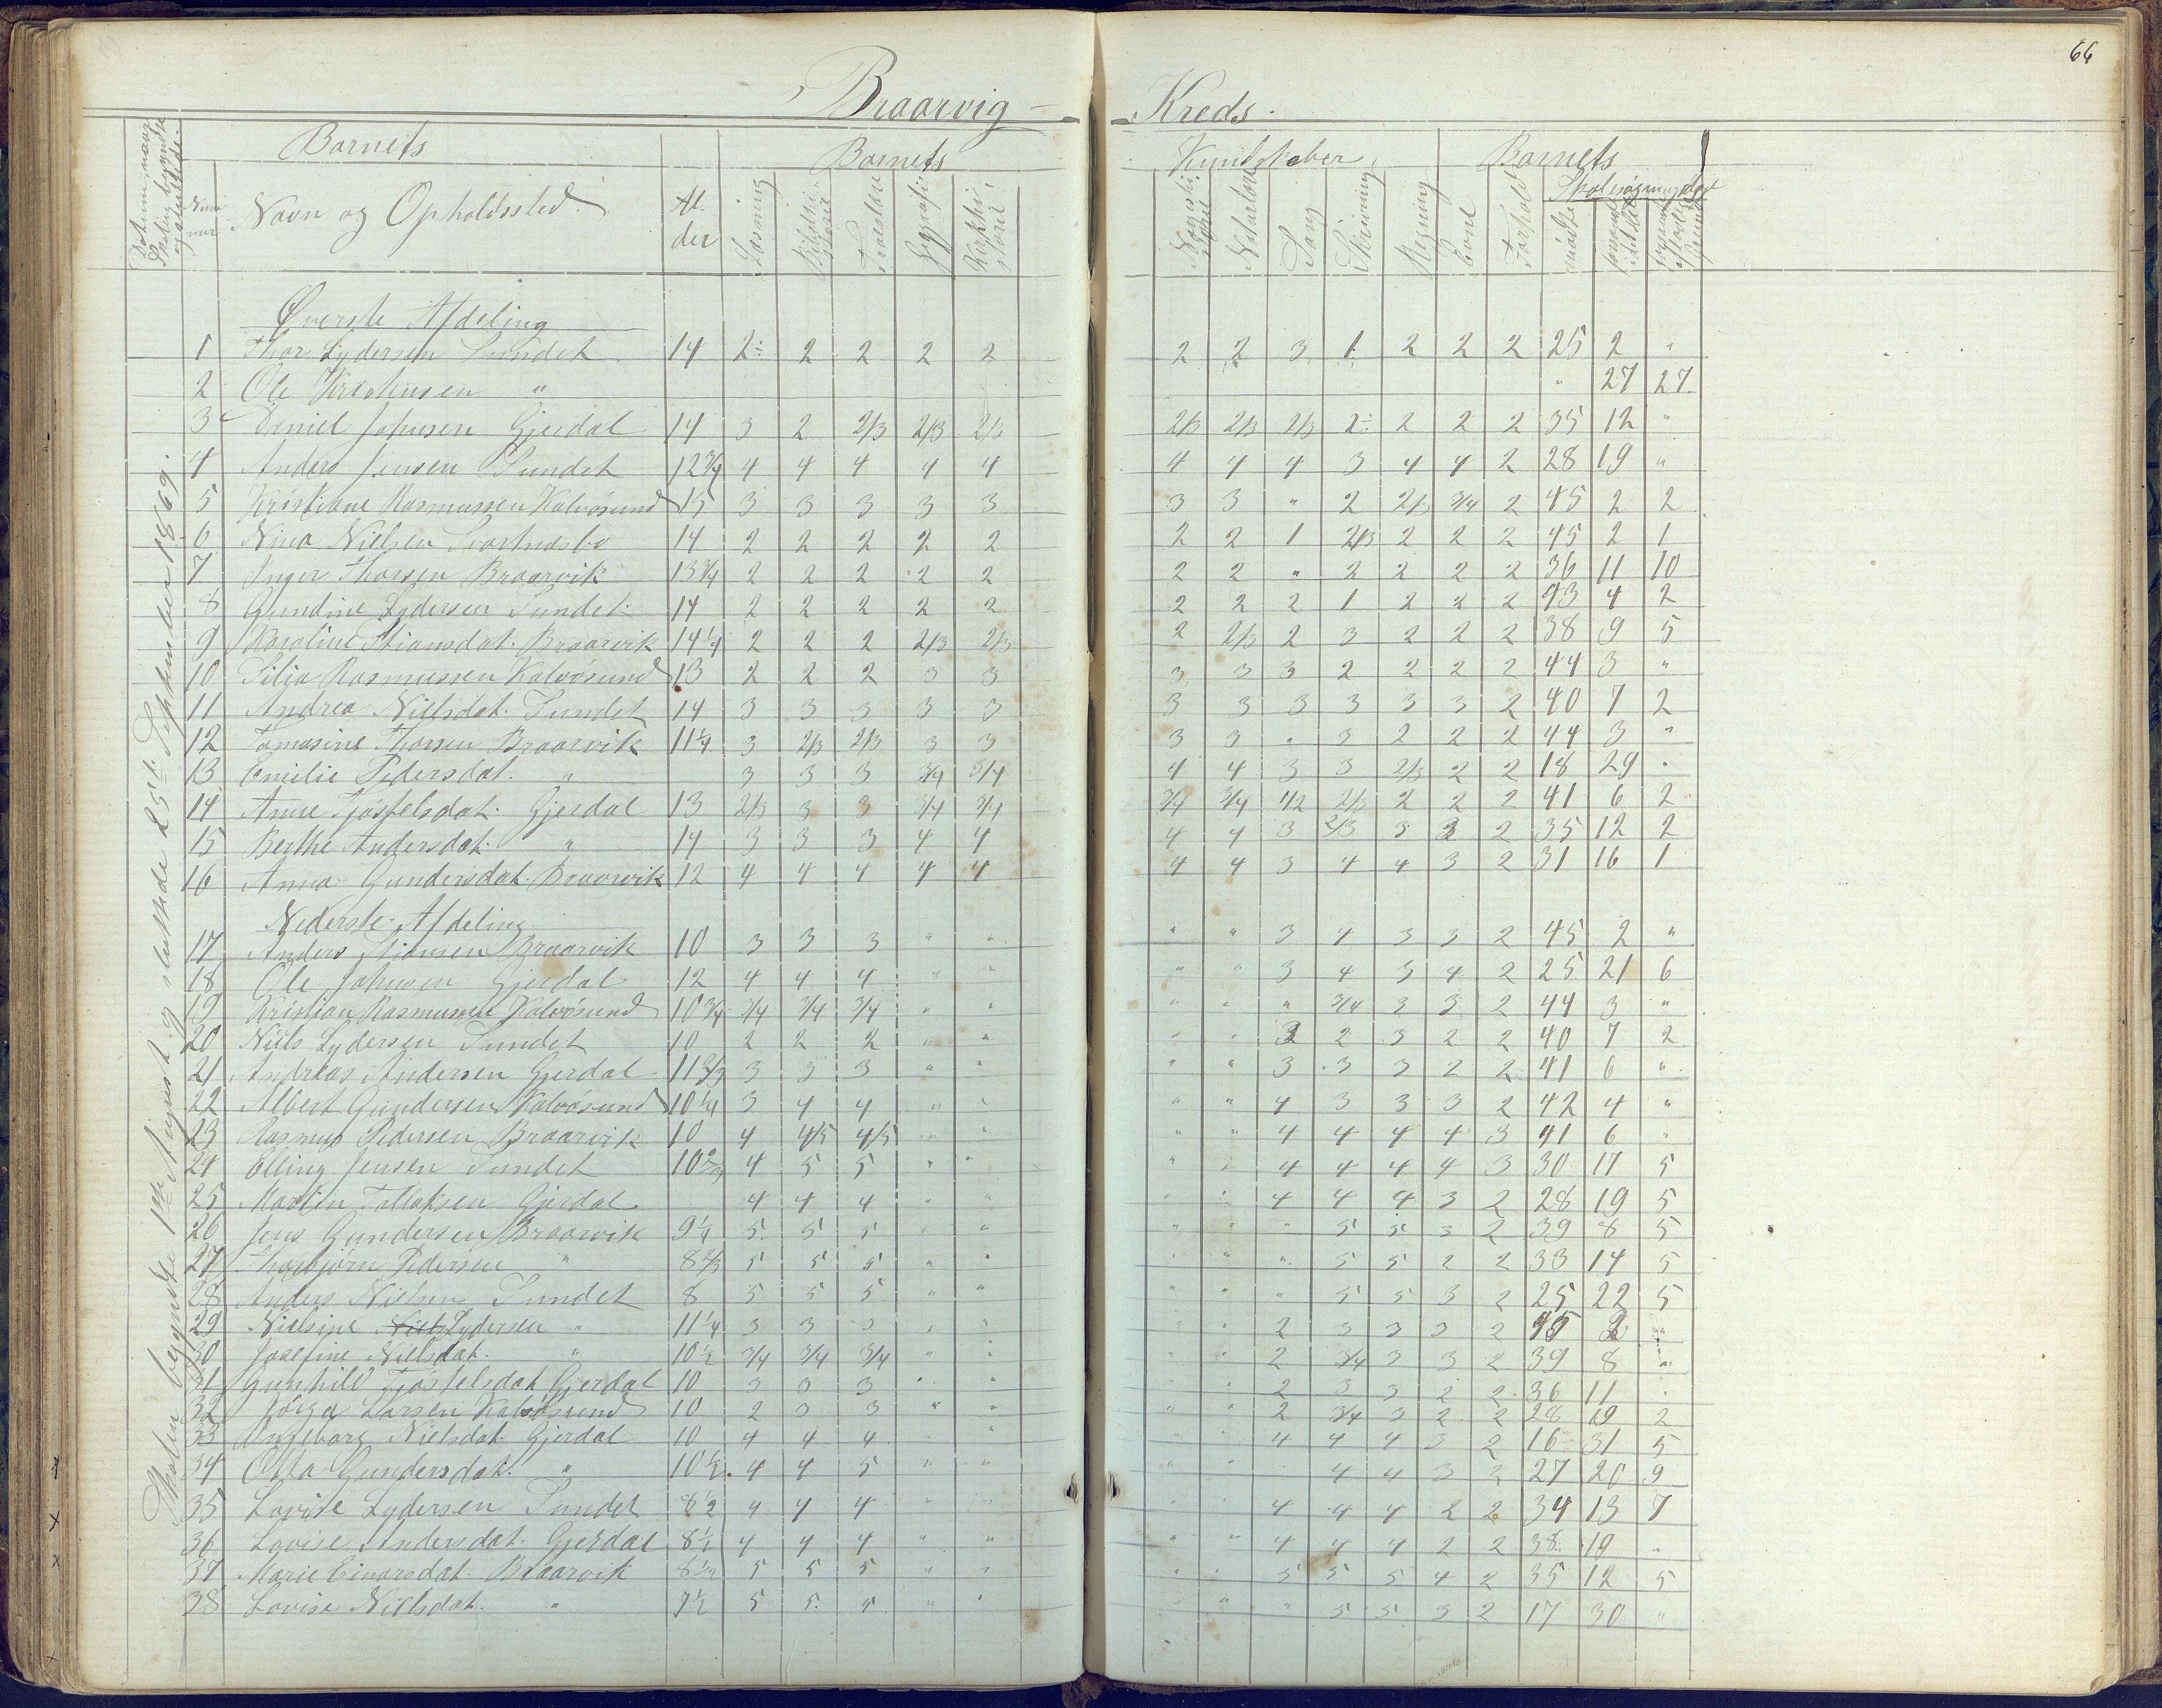 66
Braarvig Kreds.
Skolen begyndte 1ste August og sluttede 25de September 1869.
Barnets Barnets Kundskaber Barnets
Nummer Navn og Opholdssted Alder Læsning Troeslære Sang Skrivning Regning Evne Forhold mødte
Øverste Afdeling
1 Thor Lydersen Sundet 14 2÷ 2 2 2 2 2 2 3 1 2 2 2 25 2 "
2 Ole Kristensen " " 27 27
3 Daniel Johnsen Gjerdal 14 3 2 2/3 2/3 2/3 2/3 2/3 2/3 2÷ 2 2 2 35 12 "
4 Anders Jensen Sundet 12 3/4 4 4 4 4 4 4 4 4 3 4 4 2 28 19 "
5 Kristiane Rasmussen Kalvøsund 15 3 3 3 3 3 3 3 " 2 2/3 3/4 2 45 2 2
6 Nina Nielsen 14 2 2 2 2 2 2 2 1 2/3 2 2 2 45 2 1
7 Inger Thorsen Braarvik 13 3/4 2 2 2 2 2 2 2 " 2 2 2 2 36 11 10
8 Gundine Lydersen Sundet 14 2 2 2 2 2 2 2 2 1 2 2 2 43 4 2
9 Karoline Stiansdat. Braarvik 14 1/4 2 2 2 2/3 2/3 2 2/3 2 3 2 2 2 38 9 5
10 Silja Rasmussen Kalvøsund 13 2 2 2 3 3 3 3 3 2 2 2 2 44 3 "
11 Andrea Nielsdat. Sundet 14 3 3 3 3 3 3 3 3 3 3 3 2 40 7 2
12 Tomasine Thorsen Braarvik 11 1/4 3 2/3 2/3 3 3 3 3 " 3 2 2 2 44 3 "
13 Emilie Pedersdat. " 3 3 3 3/4 3/4 4 4 3 3 2/3 2 2 18 29 "
14 Anne Tjøstelsdat. Gjerdal 13 2/3 3 3 3/4 3/4 3/4 3/4 1/2 2/3 2 2 2 41 6 2
15 Berthe Andersdat. " 14 3 3 3 4 4 4 4 3 2/3 3 3 2 35 12 2
16 Anna Gundersdat. Braarvik 12 4 4 4 4 4 4 4 3 4 4 3 2 31 16 1
Nederste Afdeling
17 Anders Stiansen Braarvik 10 3 3 3 " " " " 3 4 3 3 2 45 2 "
18 Ole Johnsen Gjerdal 12 4 4 4 " " " " 3 4 3 4 2 25 21 6
19 Kristian Rasmussen Kalvøsund 10 3/4 3/4 3/4 3/4 " " " " " 3/4 3 3 2 44 3 "
20 Niels Lydersen Sundet 10 2 2 2 " " " " 3 2 3 2 2 40 7 2
21 Andreas Andersen Gjerdal 11 2/3 3 3 3 " " " " 3 3 3 2 2 41 6 "
22 Albert Gundersen Kalvøsund 10 1/4 3 4 4 " " " " 4 3 3 3 2 42 4 "
23 Rasmus Pedersen Braarvik 10 4 4/5 4/5 " " " " 4 4 4 4 3 41 6 "
24 Elling Jensen Sundet 10 2/3 4 5 5 " " " " 4 4 4 4 3 30 17 5
25 Martin Tallaksen Gjerdal 4 4 4 " " " " 4 4 4 3 2 28 19 5
26 Jens Gundersen Braarvik 9 1/4 5 5 5 " " " " " 5 5 3 2 39 8 5
27 Thorbjørn Pedersen " 8 2/3 5 5 5 " " " " " 5 5 2 2 33 14 5
28 Anders Nielsen Sundet 8 5 5 5 " " " " " 5 5 3 2 25 22 5
29 Nielsine Niels Lydersen " 11 1/4 3 3 3 " " " " 2 3 3 3 2 45 2 "
30 Josefine Nielsdat. " 10 1/2 3/4 3/4 3/4 " " " " 2 3/4 3 3 2 39 8 "
31 Gunhild Tjøstelsdat. Gjerdal 10 3 3 3 " " " " 2 3 3 2 2 36 11 "
32 Larsen Kalvøsund 10 2 3 3 " " " " 2 3/4 3 2 2 28 19 2
33 Ingeborg Nielsdat. Gjerdal 10 4 4 4 " " " " 4 4 4 3 2 16 31 5
34 Olla Gundersdat. " 10 1/2 4 4 5 " " " " 4 4 3 2 27 20 9
35 Lovise Lydersen Sundet 8 1/2 4 4 4 " " " " 4 4 4 2 2 34 13 7
36 Lovise Andersdat. Gjerdal 8 1/2 4 4 4 " " " " 4 4 4 2 2 38 19 "
37 Marie Einarsdat. Braarvik 8 1/2 5 5 5 " " " " 5 5 5 4 2 35 12 5
38 Lovise Nielsdat. " 7 1/2 5 5 5 " " " " " 5 5 3 2 17 30 "